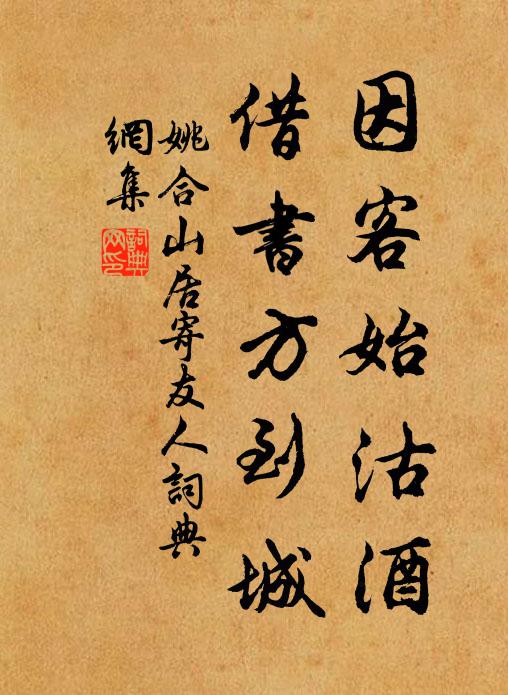 因客始沽酒
借書方到城
姚合山居寄友人詞典
網集
詞典
网印